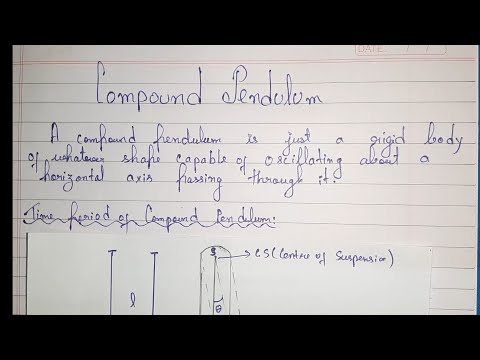 DATE / /
Compound Pendulum
A compound pendulum is just a rigid body
of whatever shape capable of oscillating about a
horizontal axis passing through it.
Time period of Compound Pendulum:
S CS (Centre of Suspension)
l
θ